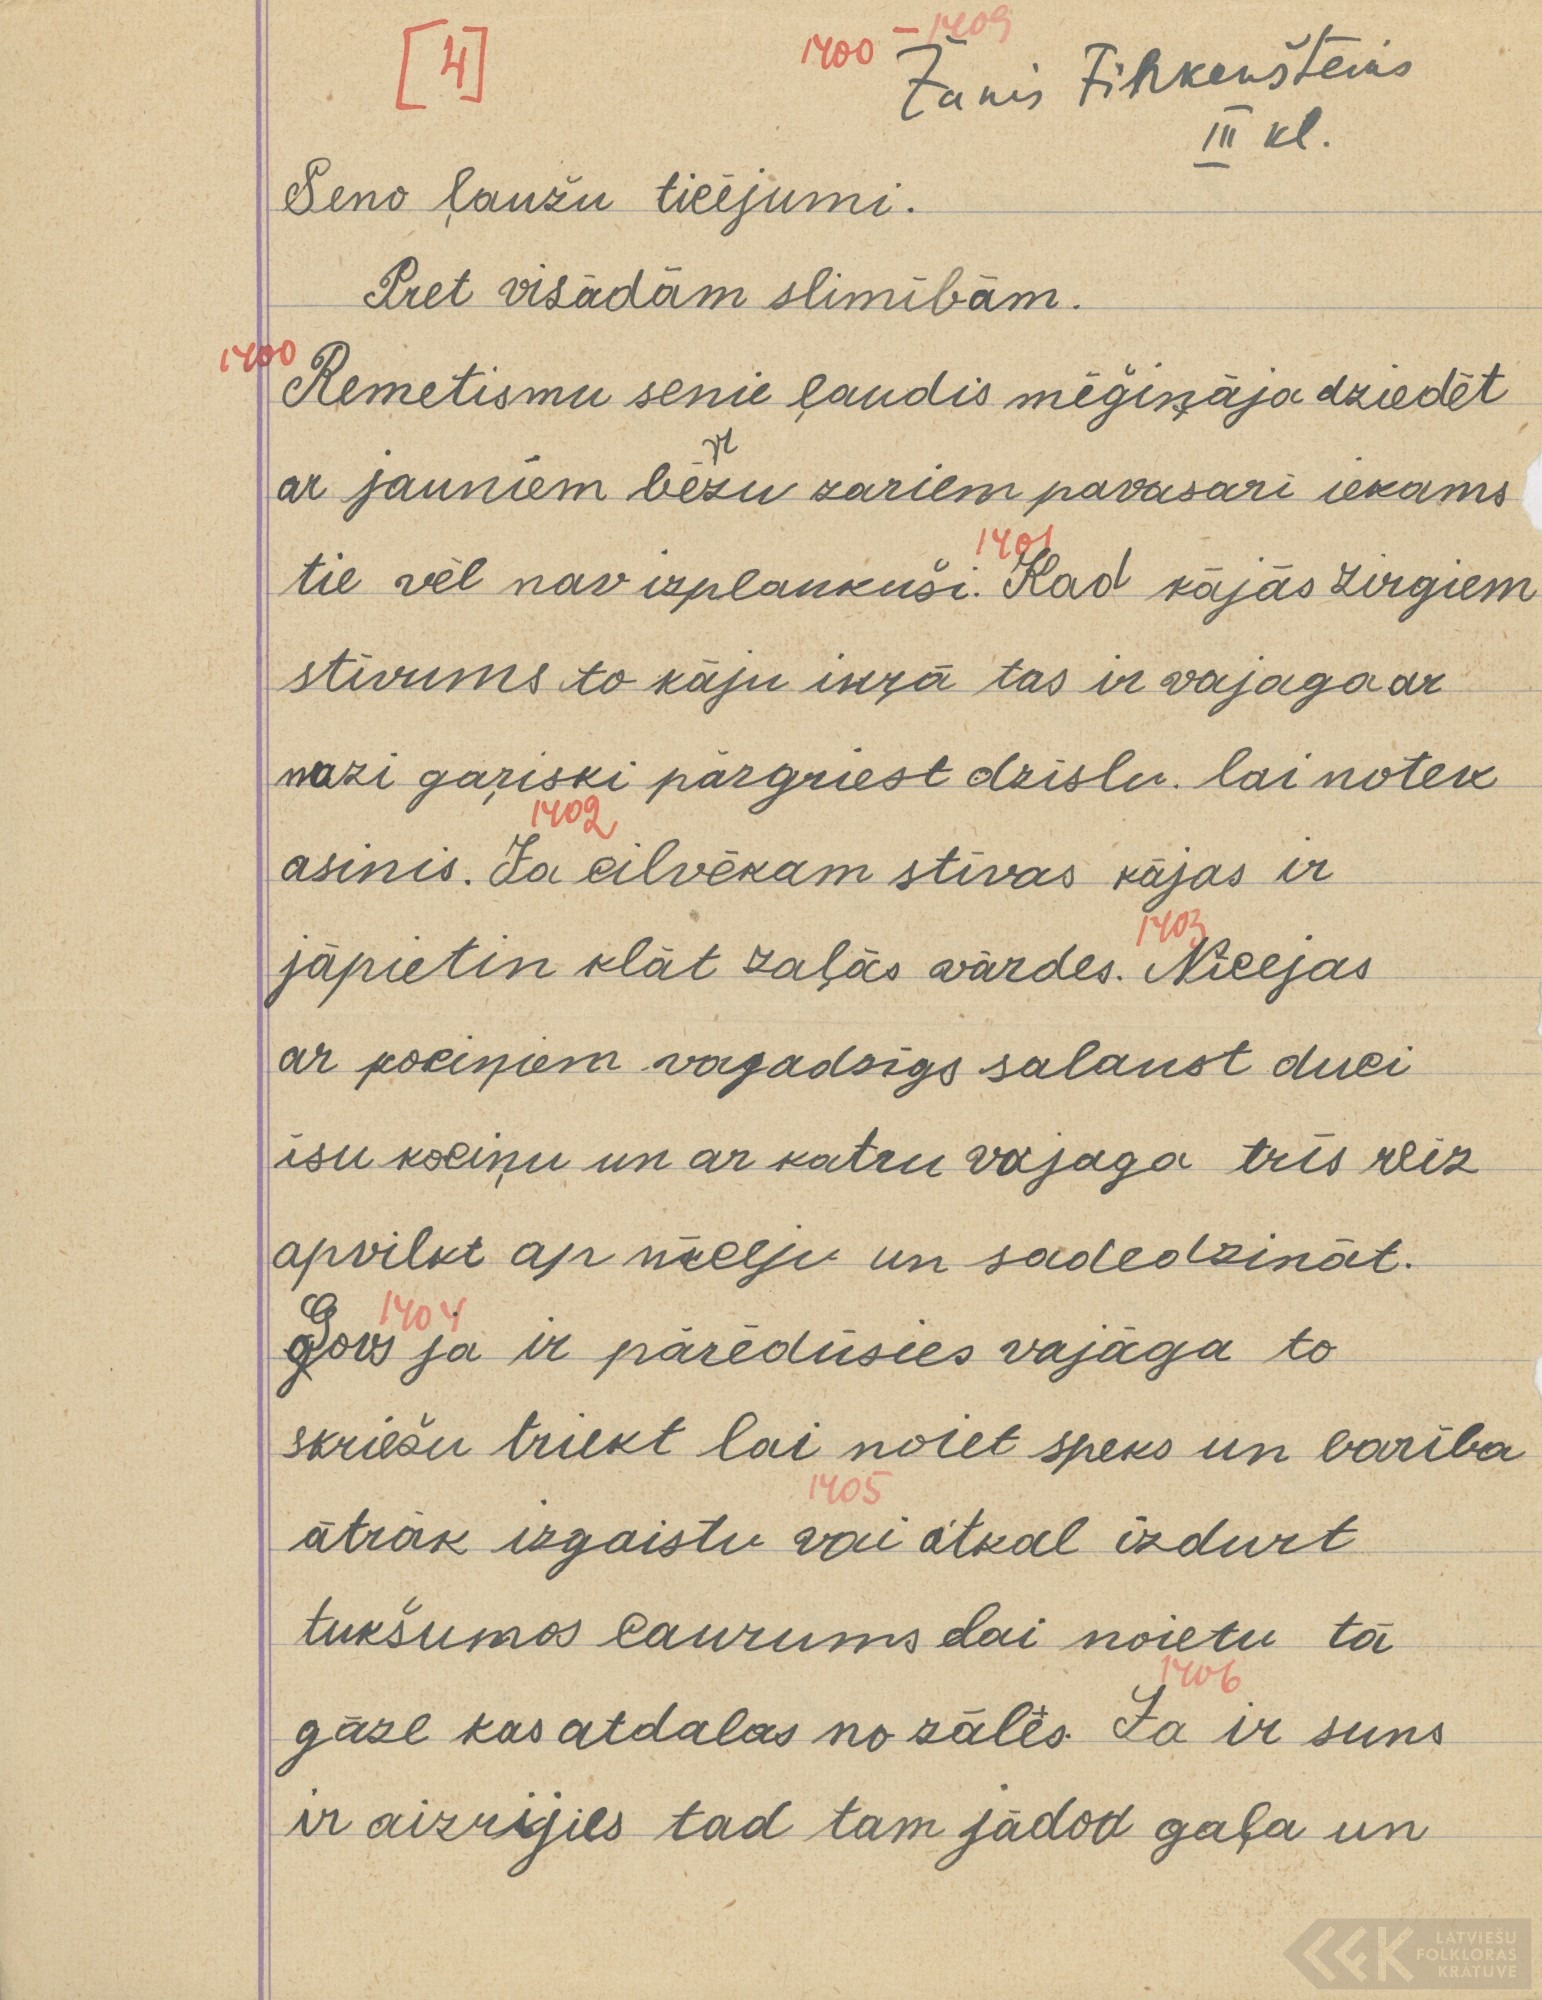 [4]
1400 – 1409
Žanis Finkenšteins
III kl.
Seno ļaužu ticējumi.
Pret visādām slimībām.
1400
Remetismu senie ļaudis mēģiņāja dziedēt
r
ar jauniem bēzu zariem pavasari iekams
tie vēl nav izplaukuši. 1401 Kad kājās zirgiem
stīvums to kāju ikŗā tas ir vajaga ar
nazi gaŗiski pārgriest dzislu. lai notek
asinis. 1402 Ja cilvēkam stīvas kājas ir
jāpietin klāt zaļās vārdes. 1403 Nicejas
ar kociņiem vagadzīgs salaust duci
īsu kociņu un ar katru vajaga trīs reiz
apvilkt ap niceju un sadedzināt.
1404
Govs ja ir pārēdūsies vajāga to
skriešu triekt lai noiet speks un barība
ātrāk izgaistu 1405 vai atkal izdurt
tukšumos caurums lai noietu tā
gāze kas atdalas no zālēs. 1406 Ja ir suns
ir aizrijies tad tam jādod gaļa un
LATVIEŠU
FOLKLORAS
KRĀTUVE